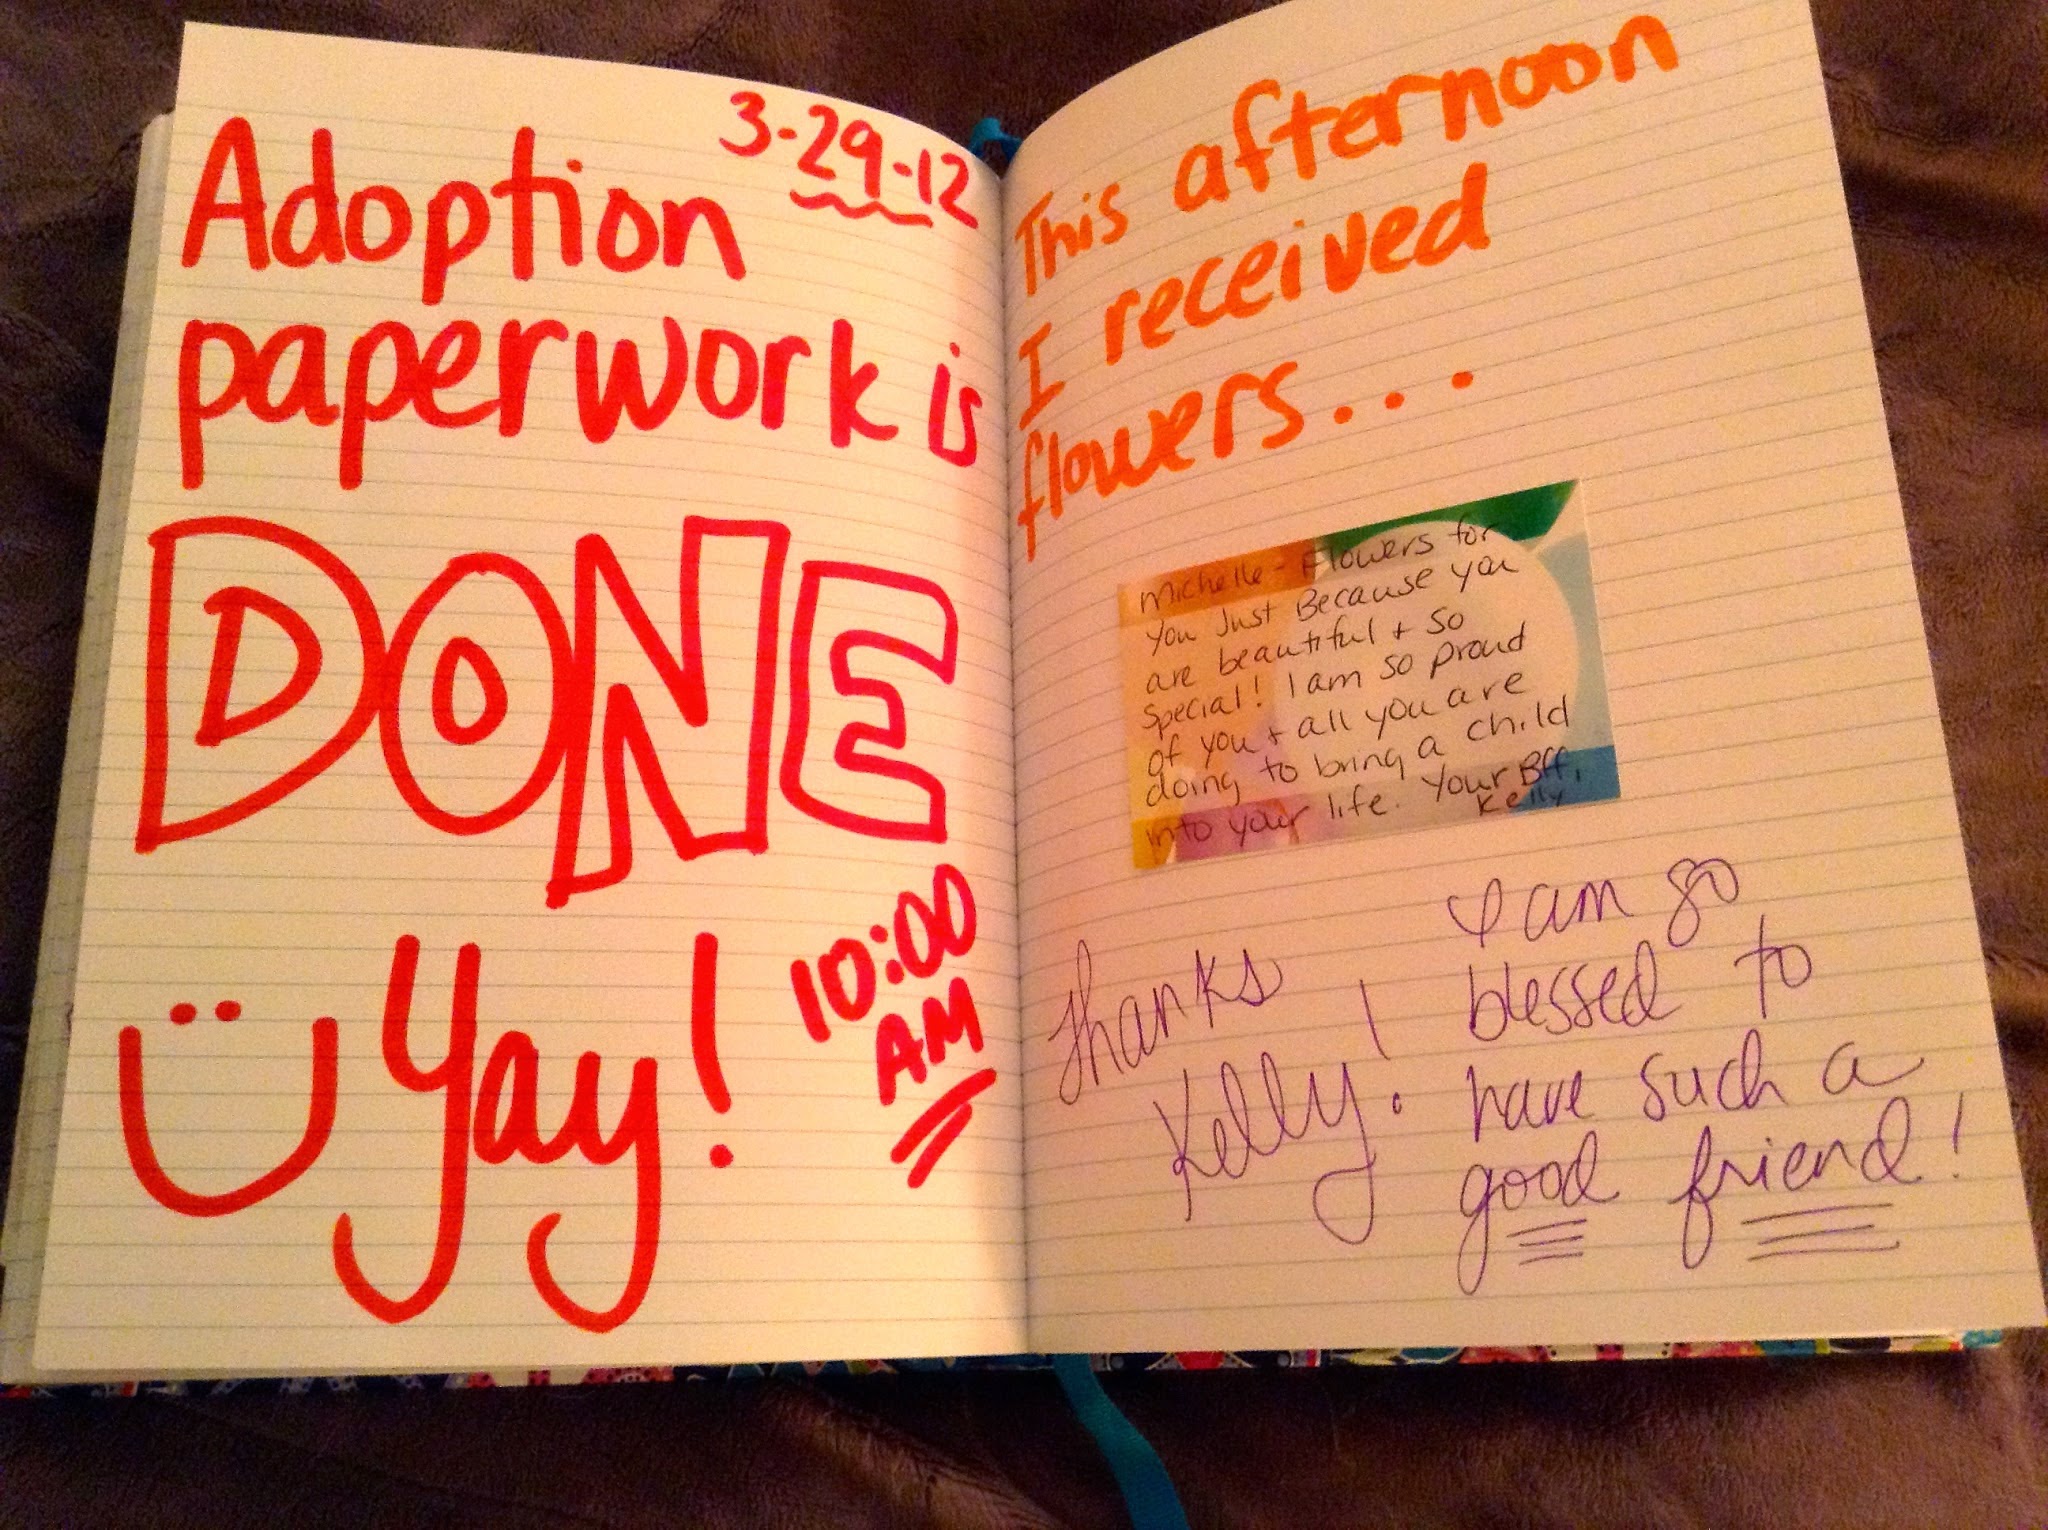 3-29-12
Adoption
paperwork is
DONE
Yay!
10:00
AM
This afternoon
I received
flowers...
Michelle - Flowers for
you Just Because you
are beautiful + so
special! I am so proud
of you + all you are
doing to bring a child
into your life. Your Bff,
Kelly
Thanks
Kelly!
I am so
blessed to
have such a
good friend!